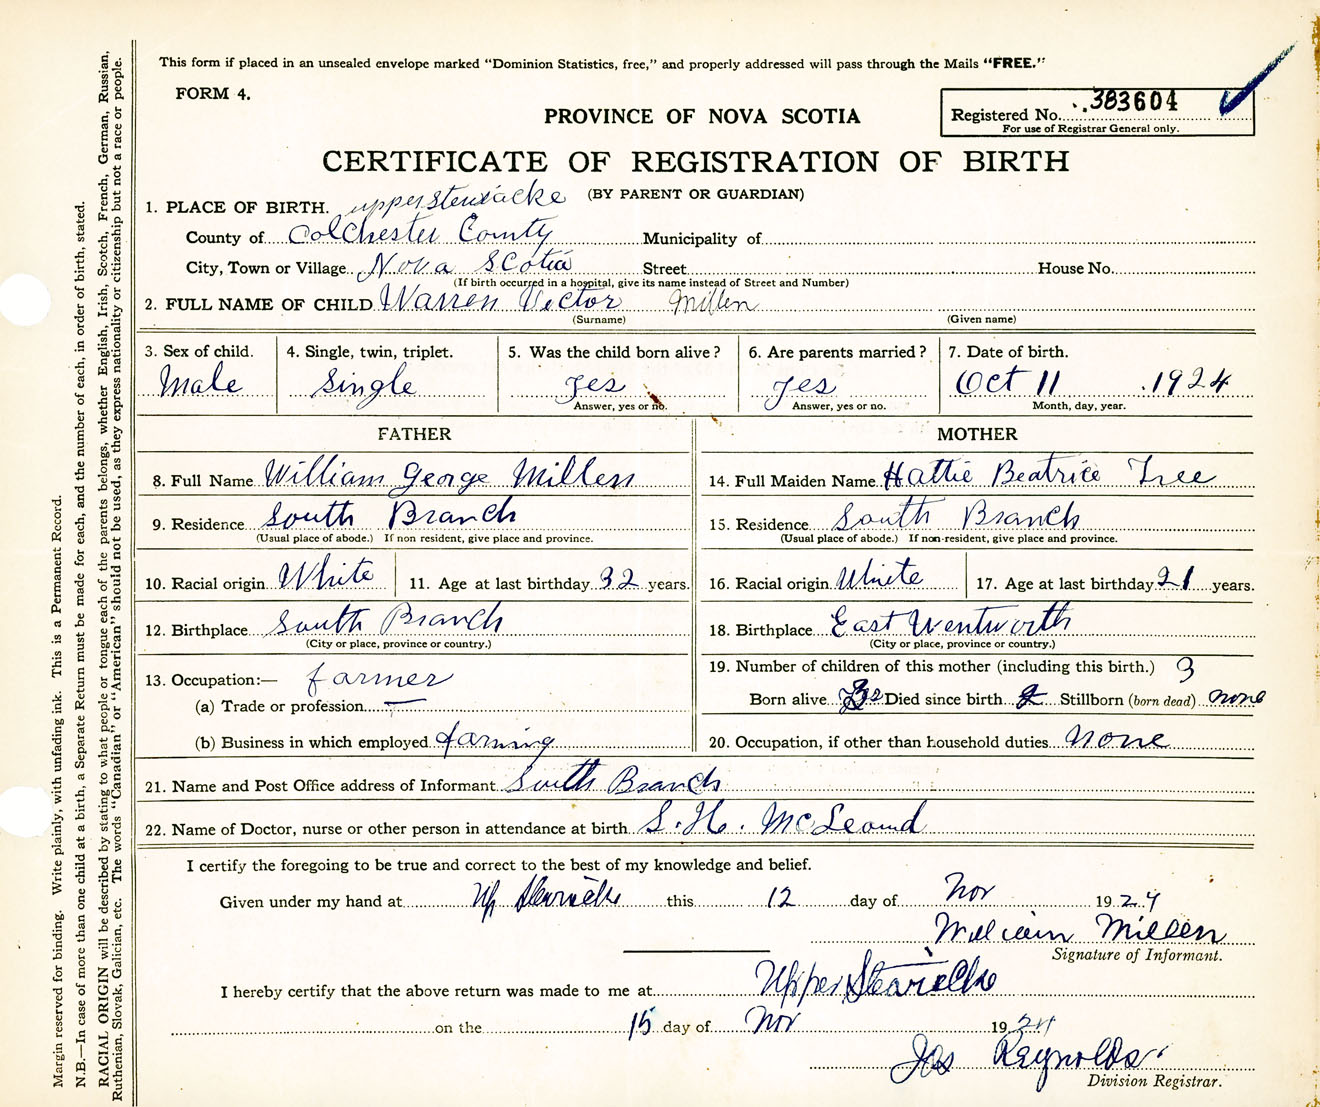 This form if placed in an unsealed envelope marked "Dominion Statistics, free," and properly addressed will pass through the Mails "FREE."
FORM 4.
Registered No. 383604
For use of Registrar General only.
PROVINCE OF NOVA SCOTIA
CERTIFICATE OF REGISTRATION OF BIRTH
(BY PARENT OR GUARDIAN)
1. PLACE OF BIRTH. upper stewiacke
County of Colchester County Municipality of
City, Town or Village Nova Scotia Street House No.
(If birth occurred in a hospital, give its name instead of Street and Number)
2. FULL NAME OF CHILD Warren Victor Millen
(Surname) (Given name)
3. Sex of child. 4. Single, twin, triplet. 5. Was the child born alive? 6. Are parents married? 7. Date of birth.
Male Single Yes Yes Oct 11 1924
Answer, yes or no. Answer, yes or no. Month, day, year.
FATHER MOTHER
8. Full Name William George Millen 14. Full Maiden Name Hattie Beatrice Tree
9. Residence South Branch 15. Residence South Branch
(Usual place of abode.) If non resident, give place and province. (Usual place of abode.) If non-resident, give place and province.
10. Racial origin White 11. Age at last birthday 32 years. 16. Racial origin White 17. Age at last birthday 21 years.
12. Birthplace South Branch 18. Birthplace East Wentworth
(City or place, province or country.) (City or place, province or country.)
13. Occupation:— farmer 19. Number of children of this mother (including this birth.) 3
(a) Trade or profession — Born alive Died since birth Stillborn (born dead) none
(b) Business in which employed farming 20. Occupation, if other than household duties none
21. Name and Post Office address of Informant South Branch
22. Name of Doctor, nurse or other person in attendance at birth S. H. McLeound
I certify the foregoing to be true and correct to the best of my knowledge and belief.
Given under my hand at Up this 12 day of Nov 1924
William Millen
Signature of Informant.
I hereby certify that the above return was made to me at Upper
on the 15 day of Nov 1924
Jos Reynolds
Division Registrar.
Margin reserved for binding. Write plainly, with unfading ink. This is a Permanent Record.
N.B.—In case of more than one child at a birth, a Separate Return must be made for each, and the number of each, in order of birth, stated.
RACIAL ORIGIN will be described by stating to what people or tongue each of the parents belongs, whether English, Irish, Scotch, French, German, Russian,
Ruthenian, Slovak, Galician, etc. The words "Canadian" or "American" should not be used, as they express nationality or citizenship but not a race or people.